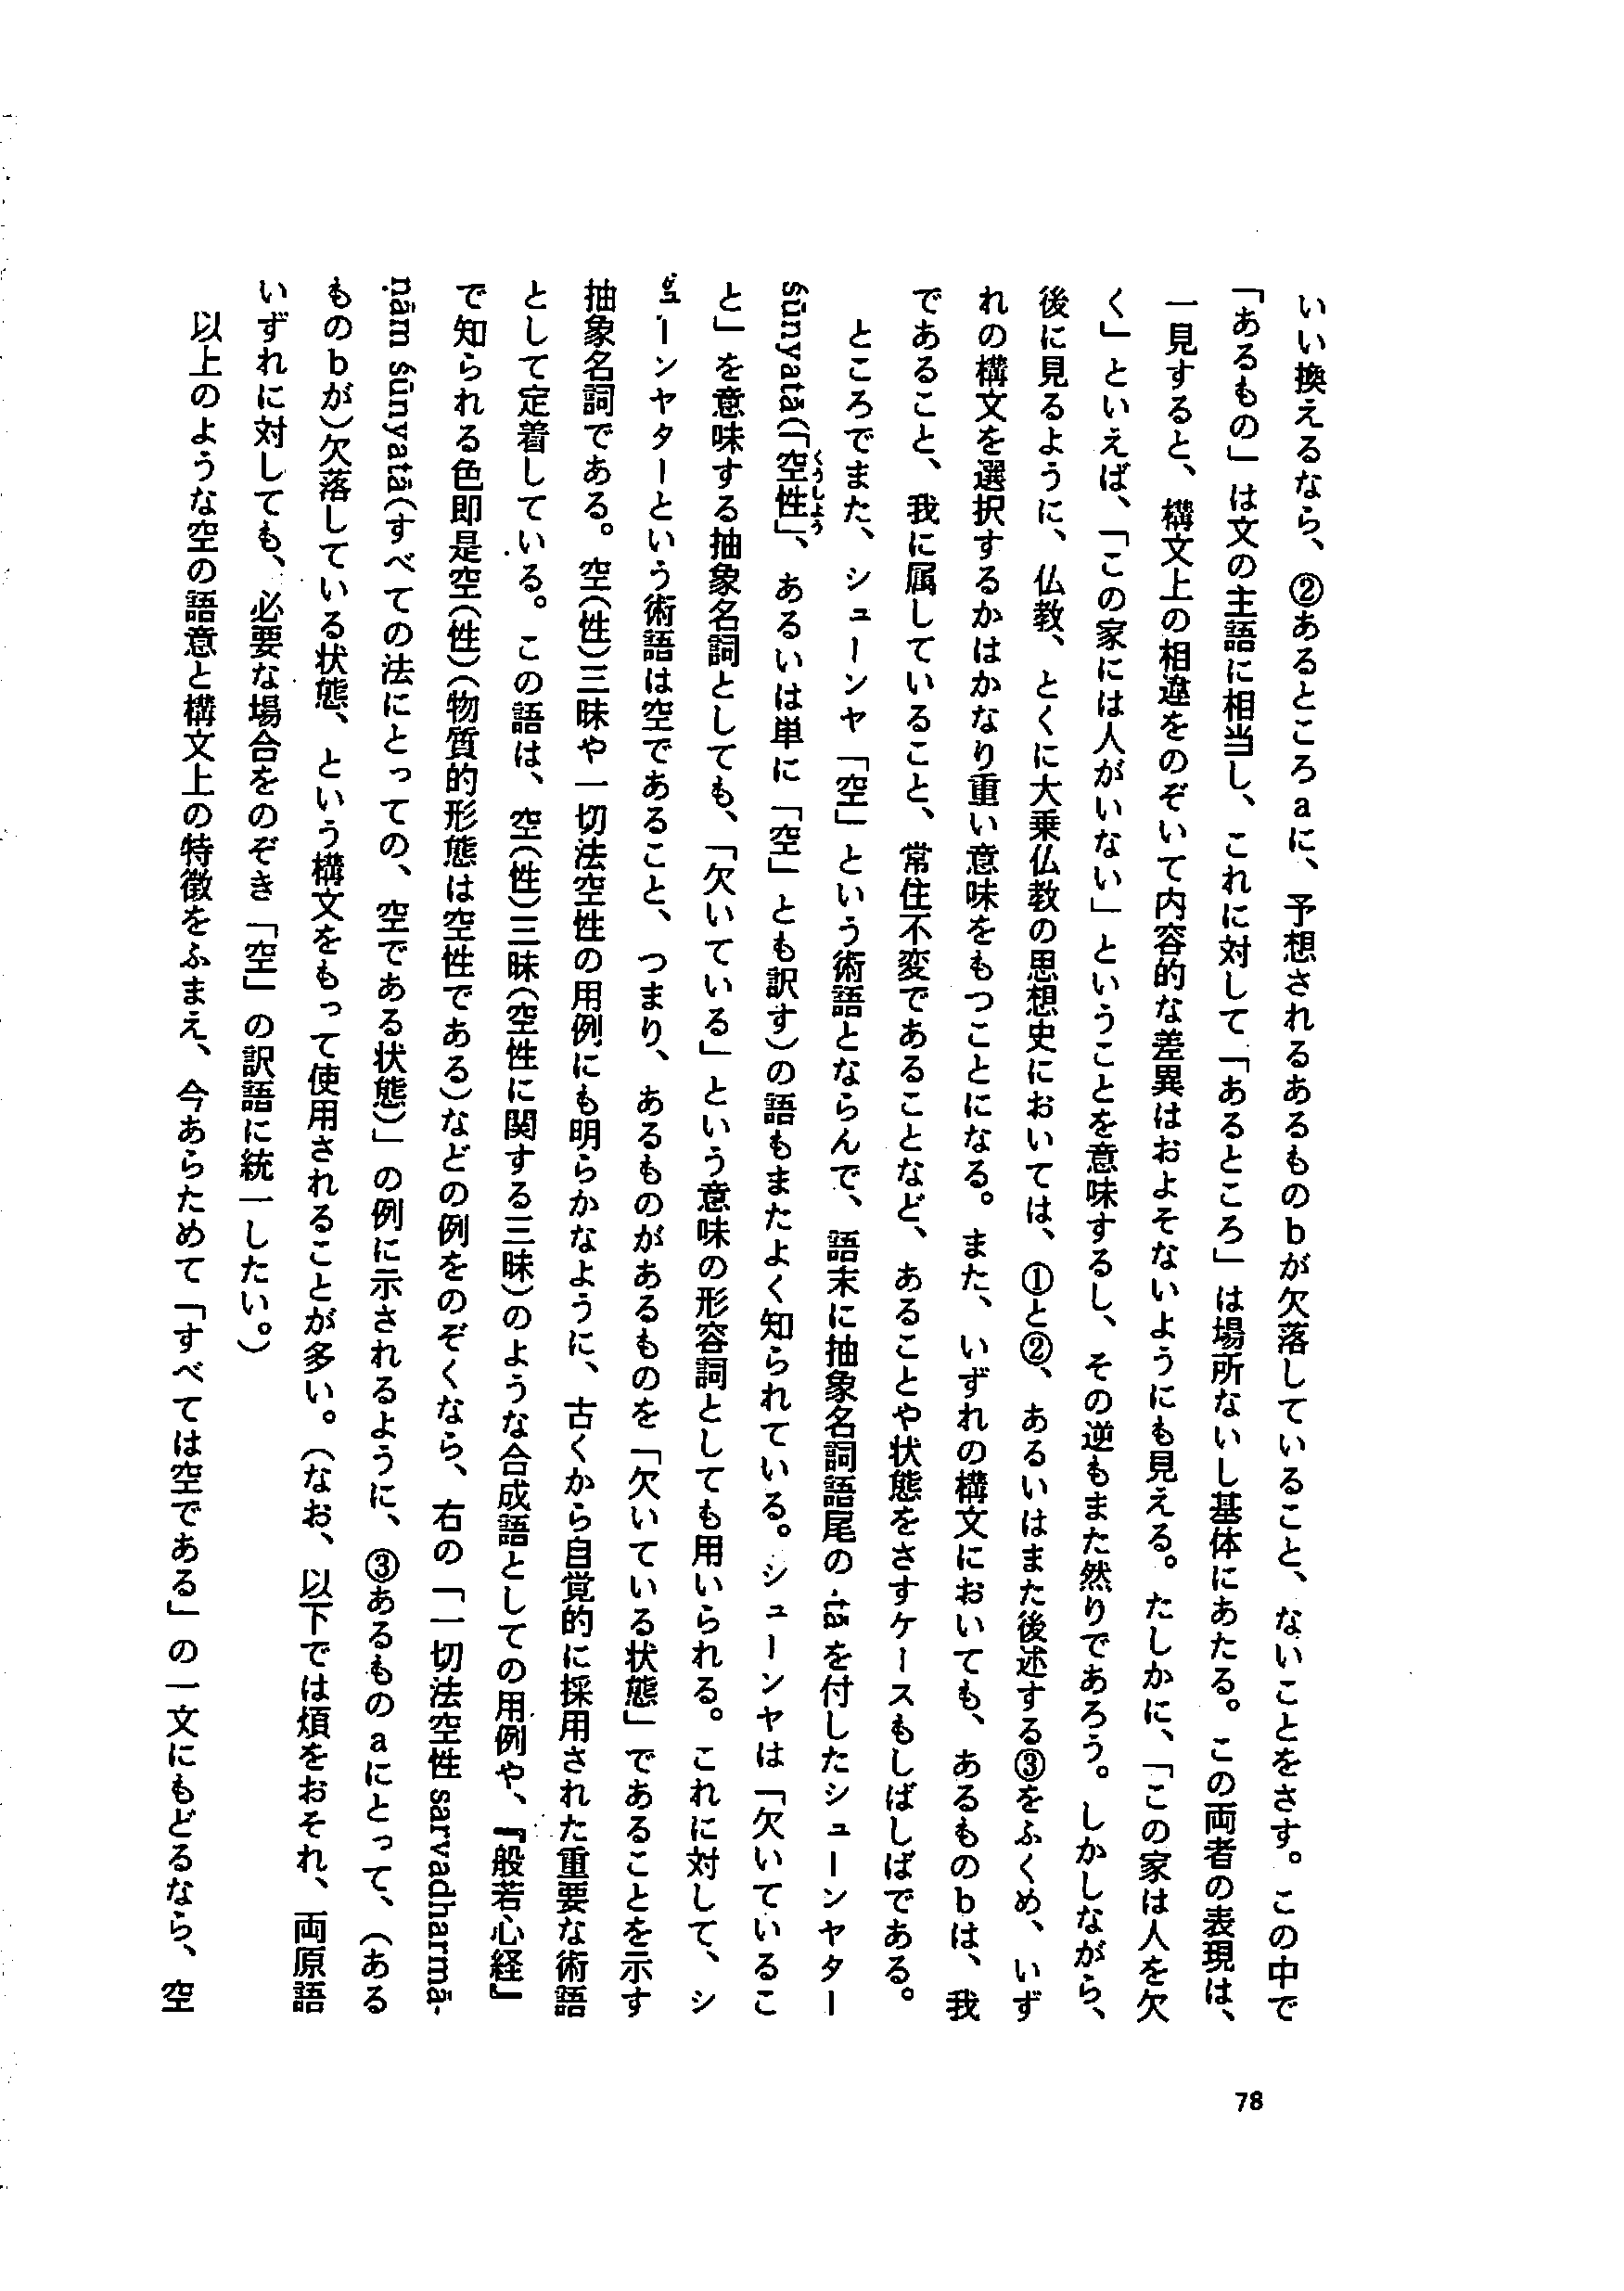 いい換えるなら、②あるところaに、予想されるあるものbが欠落していること、ないことをさす。この中で
「あるもの」は文の主語に相当し、これに対して「あるところ」は場所ないし基体にあたる。この両者の表現は、
一見すると、構文上の相違をのぞいて内容的な差異はおよそないようにも見える。たしかに、「この家は人を欠
く」といえば、「この家には人がいない」ということを意味するし、その逆もまた然りであろう。しかしながら、
後に見るように、仏教、とくに大乗仏教の思想史においては、①と②、あるいはまた後述する③をふくめ、いず
れの構文を選択するかはかなり重い意味をもつことになる。また、いずれの構文においても、あるものbは、我
であること、我に属していること、常住不変であることなど、あることや状態をさすケースもしばしばである。
ところでまた、シューンヤ「空」という術語とならんで、語末に抽象名詞語尾の -tā を付したシューンヤター
śūnyatā(「空性」、あるいは単に「空」とも訳す)の語もまたよく知られている。シューンヤは「欠いているこ
くうしょう
と」を意味する抽象名詞としても、「欠いている」という意味の形容詞としても用いられる。これに対して、シ
ューンヤターという術語は空であること、つまり、あるものがあるものを「欠いている状態」であることを示す
抽象名詞である。空(性)三昧や一切法空性の用例にも明らかなように、古くから自覚的に採用された重要な術語
として定着している。この語は、空(性)三昧(空性に関する三昧)のような合成語としての用例や、『般若心経』
で知られる色即是空(性)(物質的形態は空性である)などの例をのぞくなら、右の「一切法空性 sarvadharmā-
ṇām śūnyatā(すべての法にとっての、空である状態)」の例に示されるように、③あるものaにとって、(ある
ものbが)欠落している状態、という構文をもって使用されることが多い。(なお、以下では煩をおそれ、両原語
いずれに対しても、必要な場合をのぞき「空」の訳語に統一したい。)
以上のような空の語意と構文上の特徴をふまえ、今あらためて「すべては空である」の一文にもどるなら、空
78